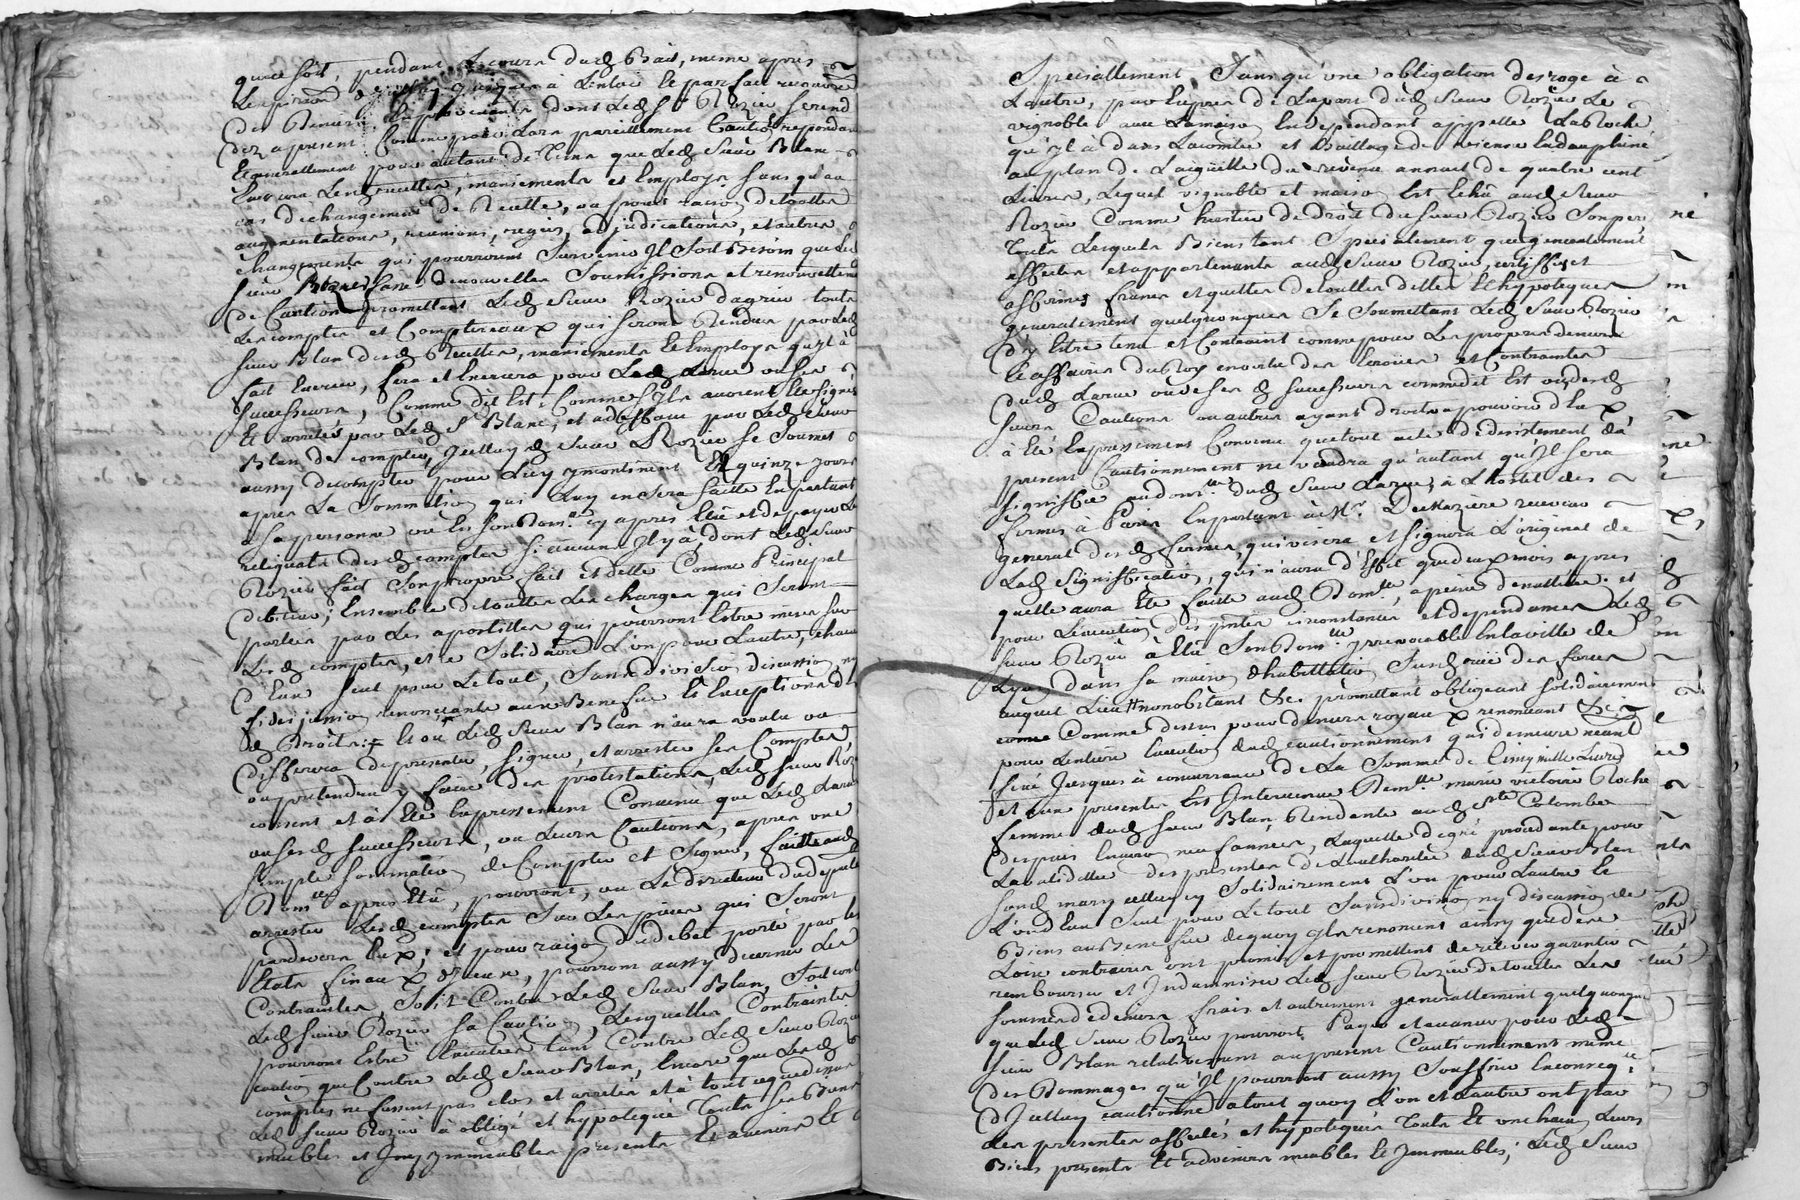 que soit, pendant le cours dud Bail, meme apres
Lexpiration jusques à Lentier le parfait recouvrem
des Deniers dont Led Sr Rozier se rend
dez apresent Comme pour Lors pareillement Caution repondant
Generallement pour autant de Tems que Led Sieur Blanc
Exercera Lesd recettes, maniements et Employs sans qu'au
cas de changement de Recette, ou pour raison de toutes
augmentations, reunions, regies, adjudications, et autres
changements qui pourroient survenir Il soit Besoin que Led
Sieur Rozier fasse denouvelles Soumissions et renouvellem
de Caution promettant Led Sieur Rozier dagreer touts
Les comptes et Comptereaux qui seront Rendus par Led
Sieur Blan desd Recettes, maniements Et Employs quil à
fait Exercer, fera et Exercera pour Led Larue ou ses
Successeurs, Comme dit Est, Comme s'Ils avoient Eté signés
Et arretés par Led Sr Blanc, et adeffaut par Led Sieur
Blan de compter, Icelluy d Sieur Rozier se Soumet
aussy decompter pour Luy ymontinent Et quinze jours
apres La Sommation qui Luy en sera faitte En parlant
a sa personne ou En son Dom.e cy apres Elû et depayer Le
reliquat desd comptes si aucun Ily à, dont Led Sieur
Rozier fait Sonpropre fait et dette Comme Principal
debiteur; Ensemble detouttes Les charges qui Seront
portées par Les apostilles qui pourront Estre mises sur
Lesd comptes, et ce Solidairem L'un pour Lautre, chacun
d'Eux seul pour Le tout, Sans division discussion, ny
fidejussion, renonceants aux Benefice Et Exceptions d
d Droits; Et où Led Sieur Blan n'aura voulu ou
differera depresenter, signer, et arrester ses Comptes
ou pretendra y faire des protestations, Led Sieur Roz
consent et à Eté Expressement Convenu que Led Larue
ou sesd successeurs, ou Leurs Cautions, apres une
simple sommation de Compter et Signer, faitte aud
Dom.lle apres Elû, pourront, ou Le directeur dud depart
arrester Lesd comptes Sur Les pieces qui Seront
pardevers Eux; et pour raison dud debet porté par les
Etats finaux d'Iceux, pourront aussy decerner des
Contraintes, Soit Contre Led Sieur Blan, Soit cont
Led Sieur Rozier sa Caution, Lesquelles Contraintes
pourront Estre Executées tant Contre Led Sieur Rozier
caution que Contre Led Sieur Blan, Encore que Lesd
comptes ne fussent pas clos et arretés et à tout cequedessus
Led Sieur Rozier à obligé et hypotequé Touts ses Biens
meubles et Immeubles presents Et avenirs Et
Speciallement, Sans qu'une obligation desroge à
Lautre, par Exprès de Lapart dud Sieur Rozier Le
vignoble avec Lamaison En Dependant appellé LaRoche
qu'yl à dans Lacomté et Bailliage de Vienne En dauphiné
au plan de Laigüille du revenu annuel de quatre cent
Livres, Lequel vignoble et maison Est Echû aud Sieur
Rozier Comme heritier de Droit du Sieur Rozier Sonpere
Touts Lesquels Biens tant Specialement que generalement
affectés et appartenants aud Sieur Rozier, certiffie et
affirme francs et quittes de touttes dettes Et hypoteques
generalement quelconques Se Soumettant Led Sieur Rozier
d'y Estre tenu et Contraint comme pour Les propres deniers
Et affaires du Roy en vertu des Ecroües et Contraintes
dud Larue ou de ses d Successeurs comme dit Est ou desd
Sieurs Cautions ou autres ayant droit apouvoir d'Eux
à Eté Expressement Convenu que tout acte de desistement du
present Cautionnement ne vaudra qu'autant qu'Il sera
signiffié au dom.lle dud Sieur Larue, à L'hotel des
fermes à Paris En parlant à Mr De Mazière receveur
general desd fermes, qui visera et signera L'original de
Lad Signiffication, qui n'aura d'Effet que deux mois apres
quelle aura Eté faitte aud Dom.lle, à peine denullité. et
pour L'execution des pntes circonstances et dependances Led
Sieur Rozier à Elû Son Dom.lle yrrevocable En laville de
Lyon dans sa maison dhabittation Sus d rue des forces
auquel Lieu nonobstant &c. promettant obligeant Solidairement
comme Comme dessus pour deniers royaux renonceant &c
pour Lentiere Execution dud cautionnement qui demeure neant
fixé Jusques à concurrance de La Somme de Cinq mille Livres
Et aux presentes Est Intervenue Dem.lle marie victoire Roche
femme dud Sieur Blan, Residente aud Ste Colombe
despuis Environ neuf années, Laquelle degré procedante pour
Lavalidité des presentes de Lauthorité dud Sieur Blan
sond mary et Luy Solidairement L'un pour Lautre Et
L'un d'Eux Seul pour Letout Sans division ny discussion de
Biens au Benefice dequoy Ils renoncent ainsy quedetoutes
Loix contraires ont promis et promettent de relever garentir
rembourser et Indamniser Led Sieur Rozier detouttes Les
Sommes dedeniers frais et autrement generallement quelconques
que Led Sieur Rozier pourroit Payer et avancer pour Led
Sieur Blan relativement au present Cautionnement meme
des Dommages qu'Il pourroit aussy Souffrir En conseq.ce
d'Icelluy cautionnem atout quoy L'un et L'autre ont par
Les presentes affectés et hypotequés Touts Et un chacun Leurs
Biens presents Et advenirs meubles Et Immeubles; Led Sieur